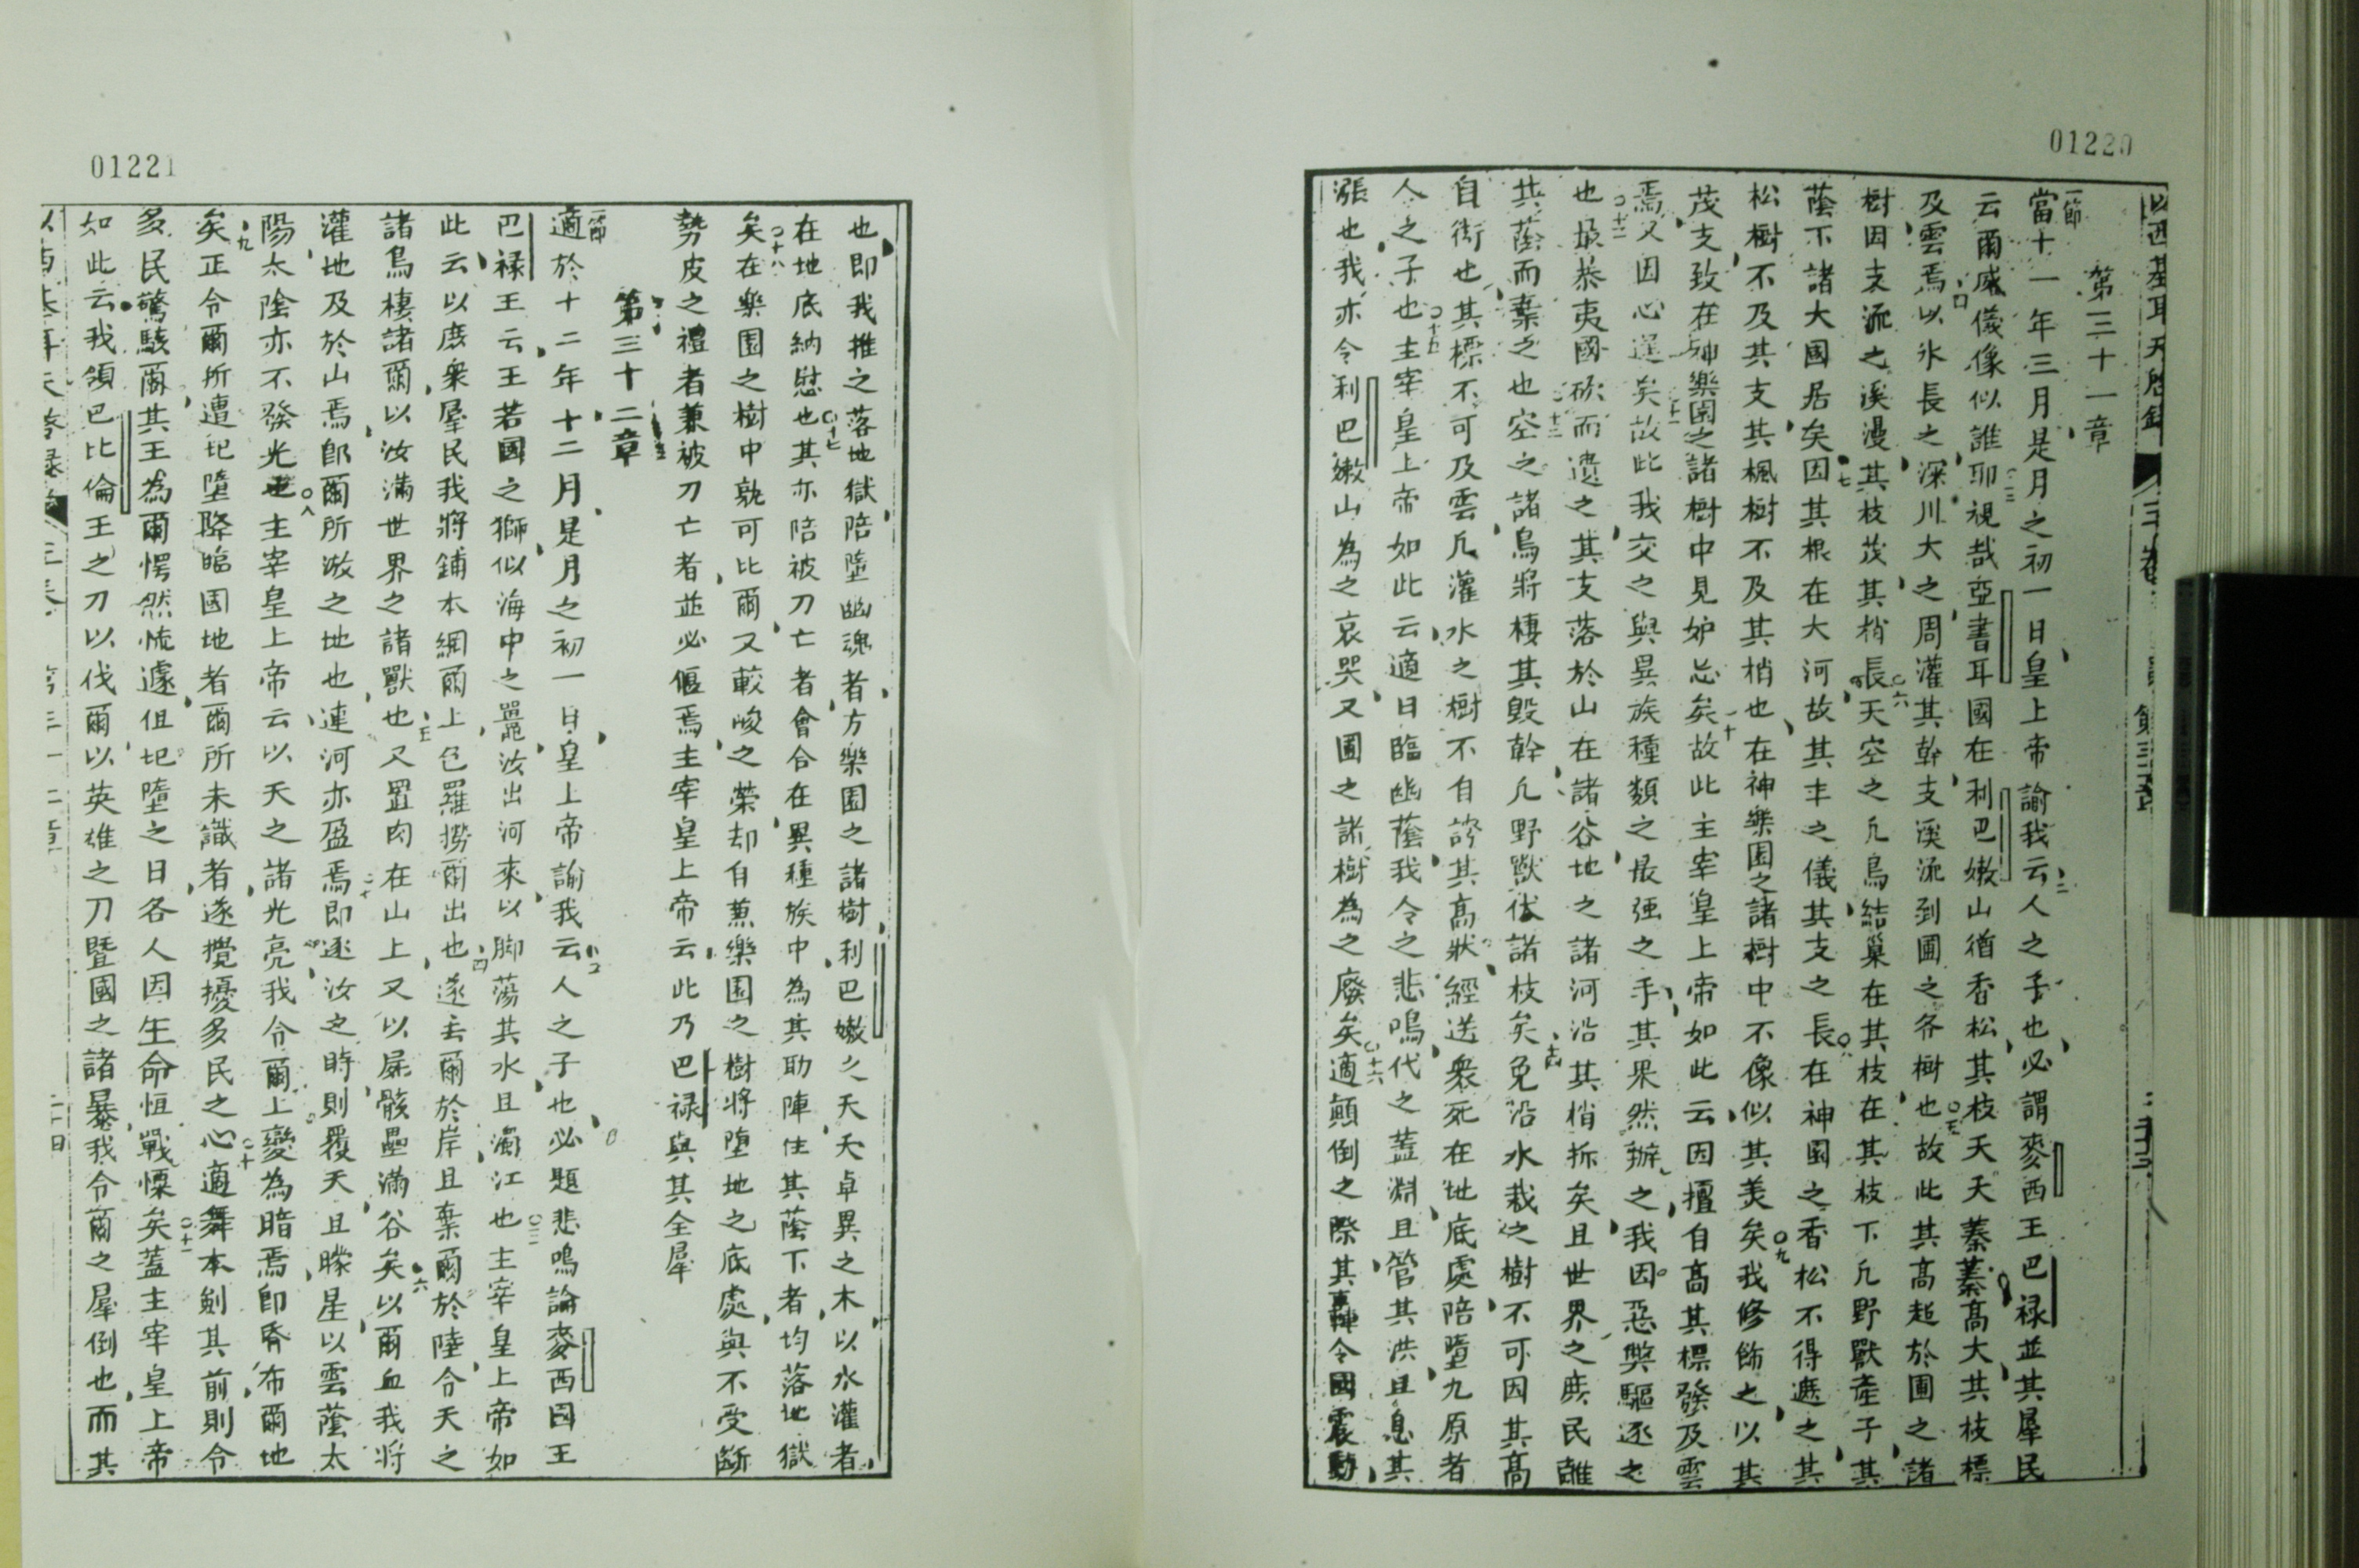 01220
第三十一章
一節
當十一年三月是月之初一日皇上帝諭我云人之子也必謂麥西王巴祿並其羣民
云爾威儀像似誰耶視哉亞書耳國在利巴嫩山猶香松其枝夭夭蓁蓁高大其枝標
及雲焉以水長之深川大之周灌其幹支溪流到圃之各樹也故此其高起於圃之諸
樹因支流之溪漫其枝茂其梢長天空之凢鳥結巢在其枝在其枝下凢野獸產子其
蔭下諸大國居矣因其根在大河故其丰之儀其支之長在神園之香松不得遮之其
松樹不及其支其楓樹不及其梢也在神樂園之諸樹中不像似其美矣我修飾之以其
茂支致在神樂園之諸樹中見妒忌矣故此主宰皇上帝如此云因擅自高其標發及雲
焉又因心逞矣故此我交之與異族種類之最强之手其果然辦之我因惡弊驅逐之
也最恭夷國砍而遺之其支落於山在諸谷地之諸河沿其梢拆矣且世界之庶民離
其蔭而棄之也空之諸鳥將棲其毀幹凢野獸伏諸枝矣免沿水栽之樹不可因其高
自衒也其標不可及雲凢灌水之樹不自誇其高狀經送衆死在地底處陪墮九原者
人之子也主宰皇上帝如此云適日臨幽蔭我令之悲鳴代之蓋淵且管其洪且息其
漲也我亦令利巴嫩山為之哀哭又圃之諸樹為之廢矣適顛倒之際其 令國震動
01221
也即我推之落地獄陪墮幽魂者方樂園之諸樹利巴嫩之夭夭卓異之木以水灌者
在地底納慰也其亦陪被刀亡者會合在異種族中為其助陣住其蔭下者均落地獄
矣在樂園之樹中孰可比爾又較峻之榮却自蕙樂園之樹將墮地之底處與不受斷
勢皮之禮者兼被刀亡者並必偃焉主宰皇上帝云此乃巴祿與其全羣
第三十二章
一節
適於十二年十二月是月之初一日皇上帝諭我云人之子也必題悲鳴論麥西國王
巴祿王云王若國之獅似海中之鼉汝出河來以脚蕩其水且濁江也主宰皇上帝如
此云以庶衆羣民我將鋪本網爾上包羅撈爾出也遂丟爾於岸且棄爾於陸令天之
諸鳥棲諸爾以汝滿世界之諸獸也又置肉在山上又以屍骸壘滿谷矣以爾血我將
灌地及於山焉卽爾所游之地也連河亦盈焉即逐汝之時則覆天且矇星以雲蔭太
陽太陰亦不發光也主宰皇上帝云以天之諸光亮我令爾上變為暗焉卽昏布爾地
矣正令爾所遭圮墮降臨國地者爾所未識者遂攪擾多民之心適舞本劍其前則令
多民驚駭爾其王為爾愕然慌遽伹圮墮之日各人因生命恒戰慄矣蓋主宰皇上帝
如此云我領巴比倫王之刀以伐爾以英雄之刀暨國之諸暴我令爾之羣倒也而其